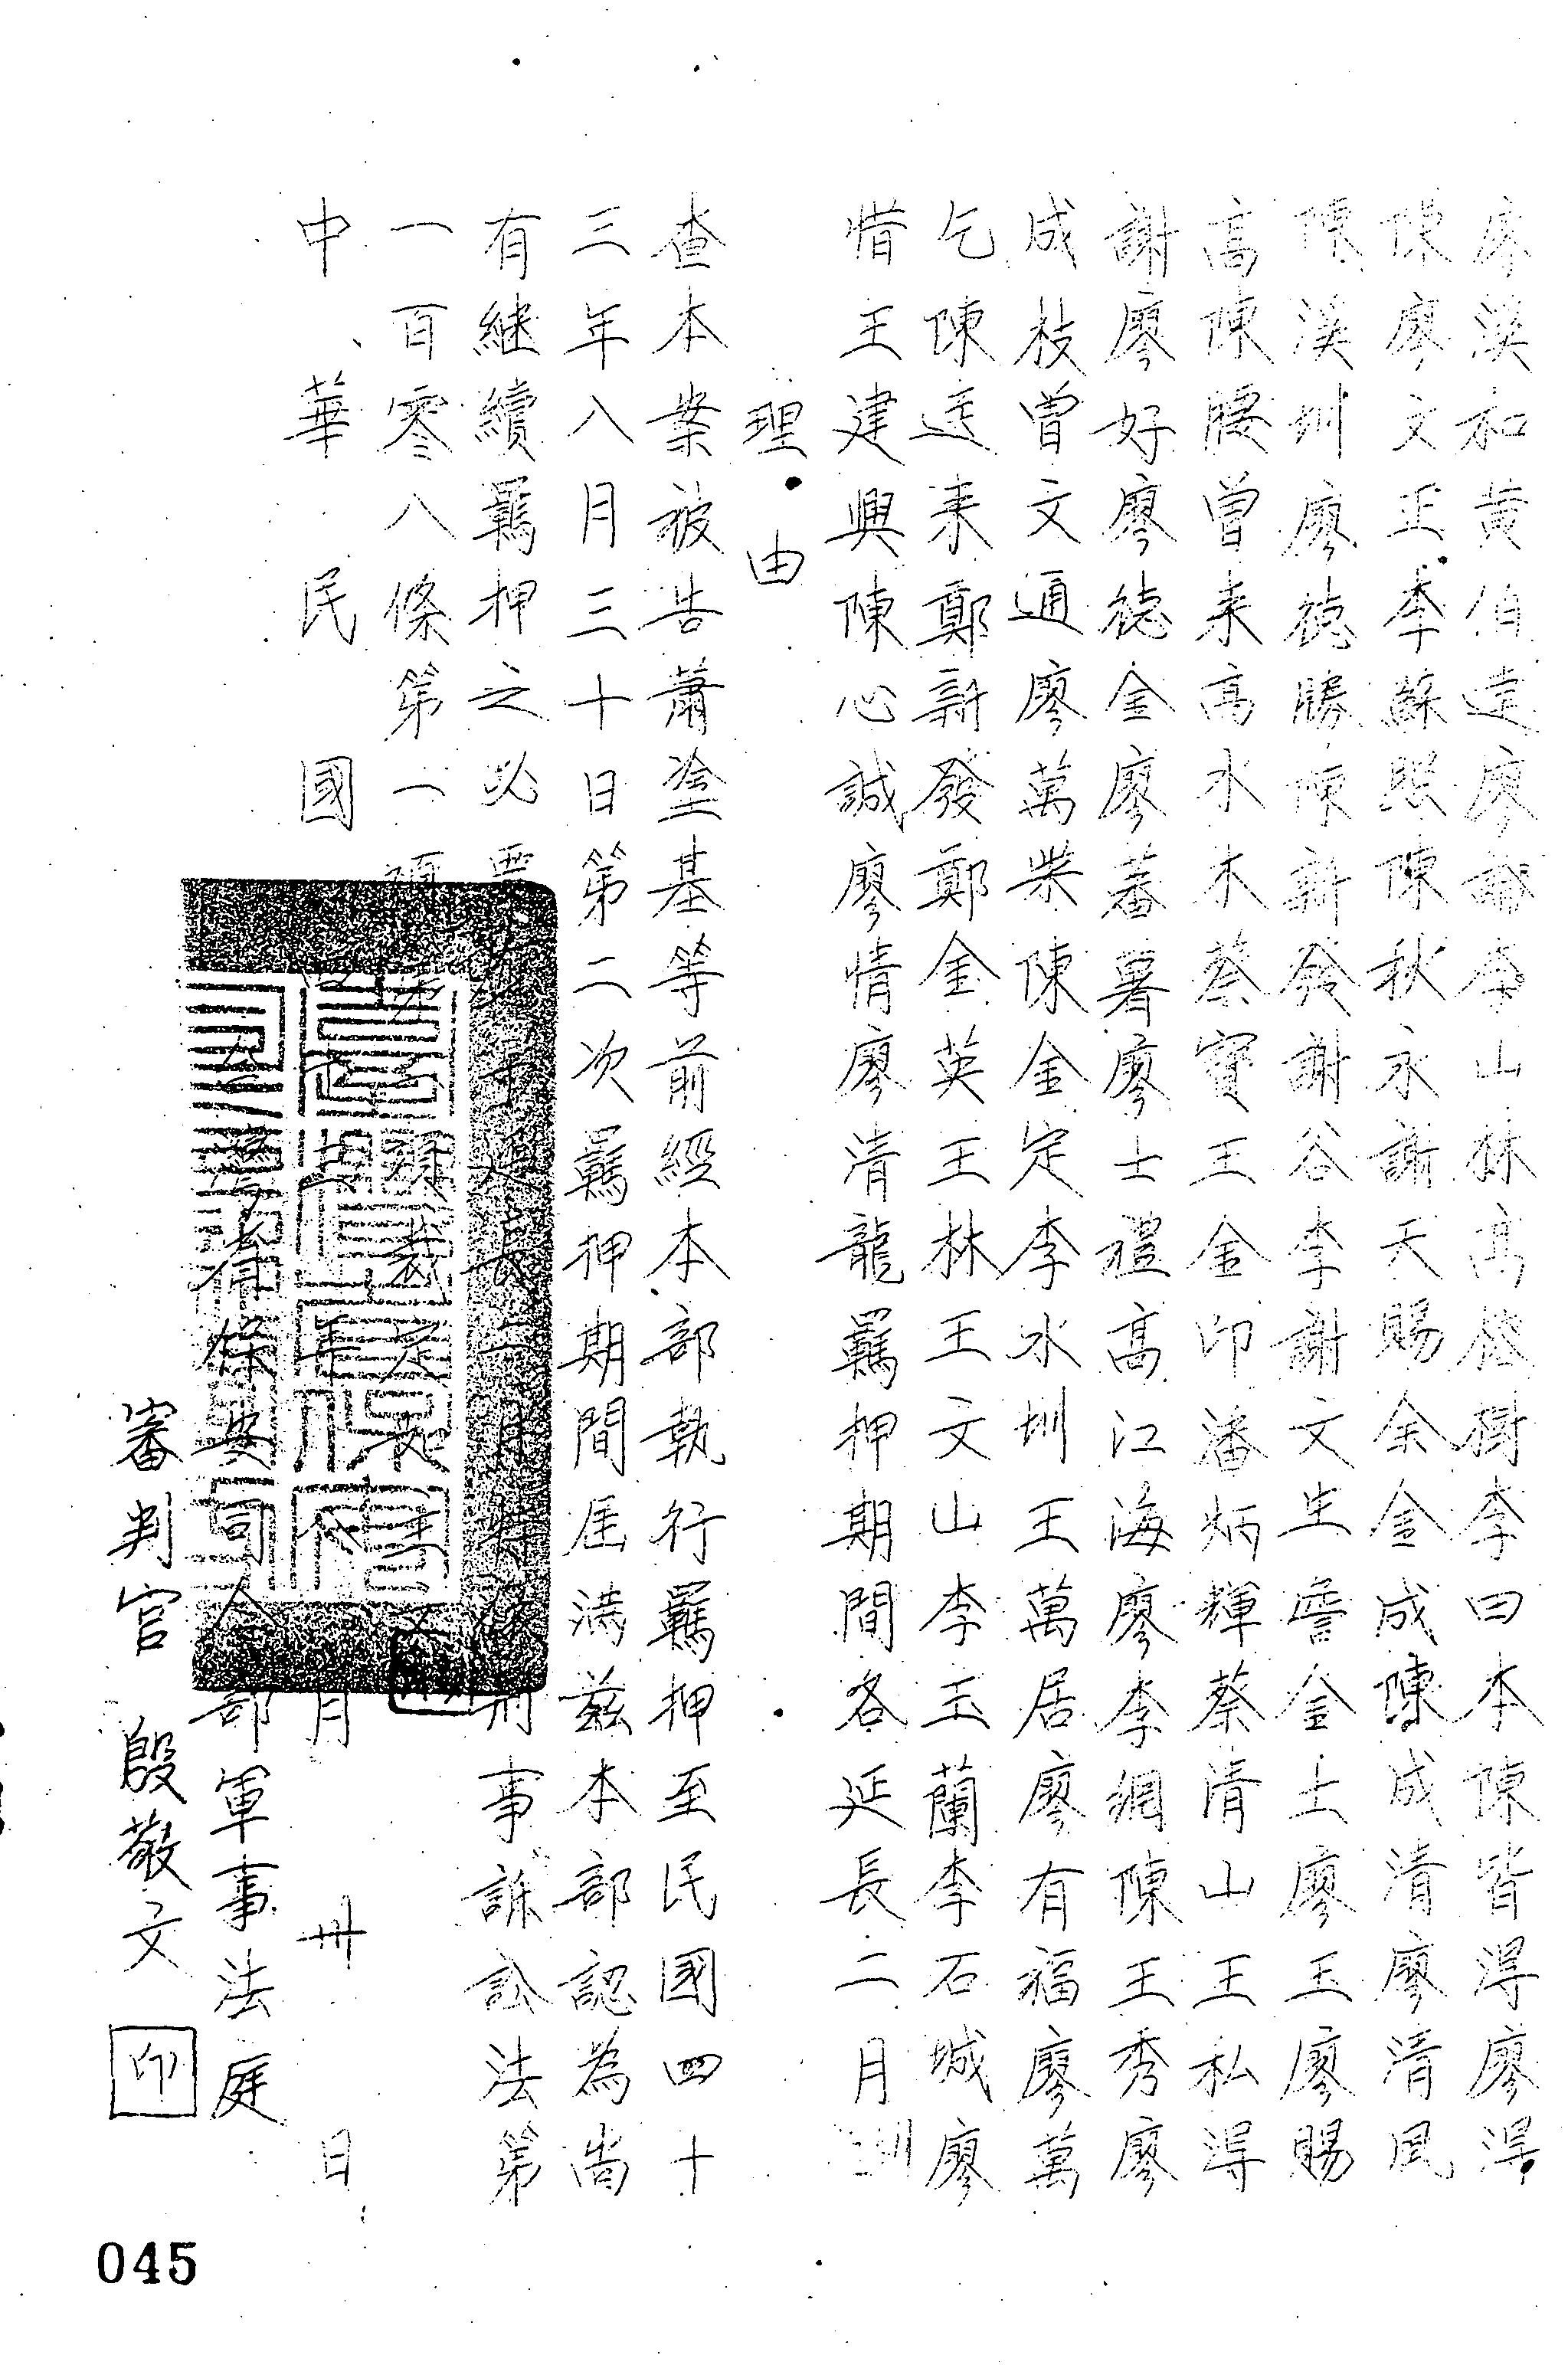 廖漢和黃伯達廖諭李山林高燈樹李曰本陳皆得廖得
陳廖文正李蘇照陳秋永謝天賜余金成陳成清廖清風
陳漢圳廖德勝陳新發謝谷李謝文生詹金土廖玉廖賜
高陳腰曾來高水木蔡寶王金印潘炳輝蔡清山王私得
謝廖好廖德金廖蕃薯廖士禮高江海廖李網陳王秀廖
成枝曾文通廖萬柴陳金定李水圳王萬居廖有福廖萬
乞陳送來鄭新發鄭金英王林王文山李玉蘭李石城廖
惜王建興陳心誠廖情廖清龍羈押期間各延長二月
理由
查本案被告蕭塗基等前經本部執行羈押至民國四十
三年八月三十日第二次羈押期間屆滿茲本部認為尚
有繼續羈押之必要 延長二月特 刑事訴訟法第
一百零八條第一項 裁定如主文
中華民國 年 月卅日
台灣省保安司令部軍事法庭
審判官 殷敬文 印
045